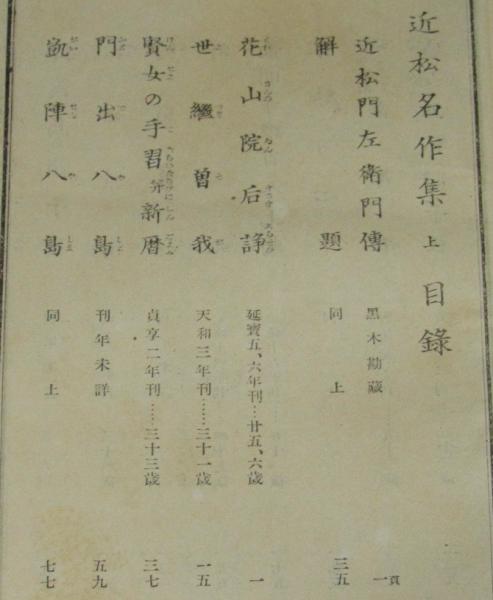 近松名作集 上 目錄
近松門左衞門傳 黑木勘藏 頁一
解題 同上 三五
花山院后諍 延寶五、六年刊…廿五、六歲 一
世繼曾我 天和三年刊……三十一歲 一五
賢女の手習幷新曆 貞享二年刊……三十三歲 三七
門出八島 刊年未詳 五九
凱陣八島 同上 七七